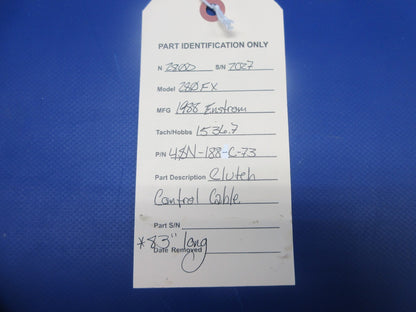 PART IDENTIFICATION ONLY
N 2860D S/N 2027
Model 280FX
MFG 1988 Enstrom
Tach/Hobbs 1536.7
P/N 48N-188-C-73
Part Description Clutch
Control Cable
Part S/N
*83" long
Date Removed